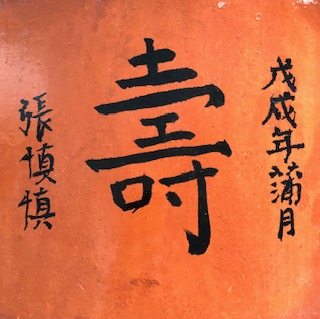 戊戌年蒲月
壽
張慎慎